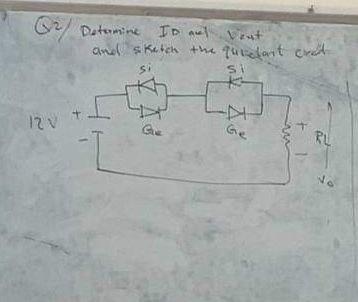 Q2/ Determine ID and Vout
and sketch the
Si
Si
12V
+
-
Ge
Ge
+
-
RL
Vo